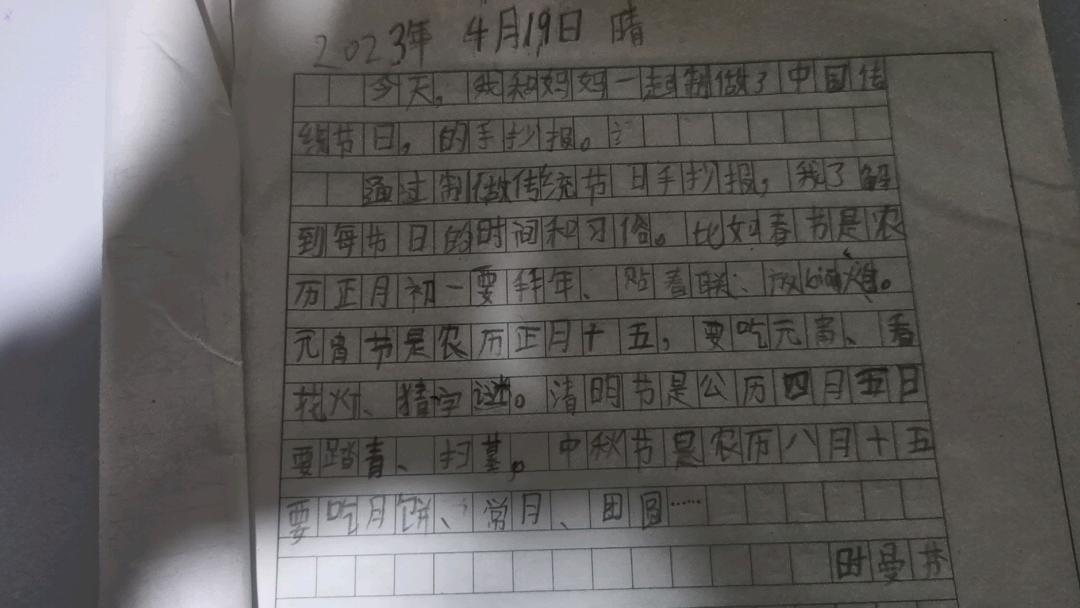 2023年 4月19日 晴
今天，我和妈妈一起制做了中国传
统节日，的手抄报。
通过制做传统节日手抄报，我了解
到每节日的时间和习俗。比如春节是农
历正月初一要拜年、贴春联、放烟花。
元宵节是农历正月十五，要吃元宵、看
花灯、猜字谜。清明节是公历四月五日
要踏青、扫墓。中秋节是农历八月十五
要吃月饼、赏月、团圆……
时曼